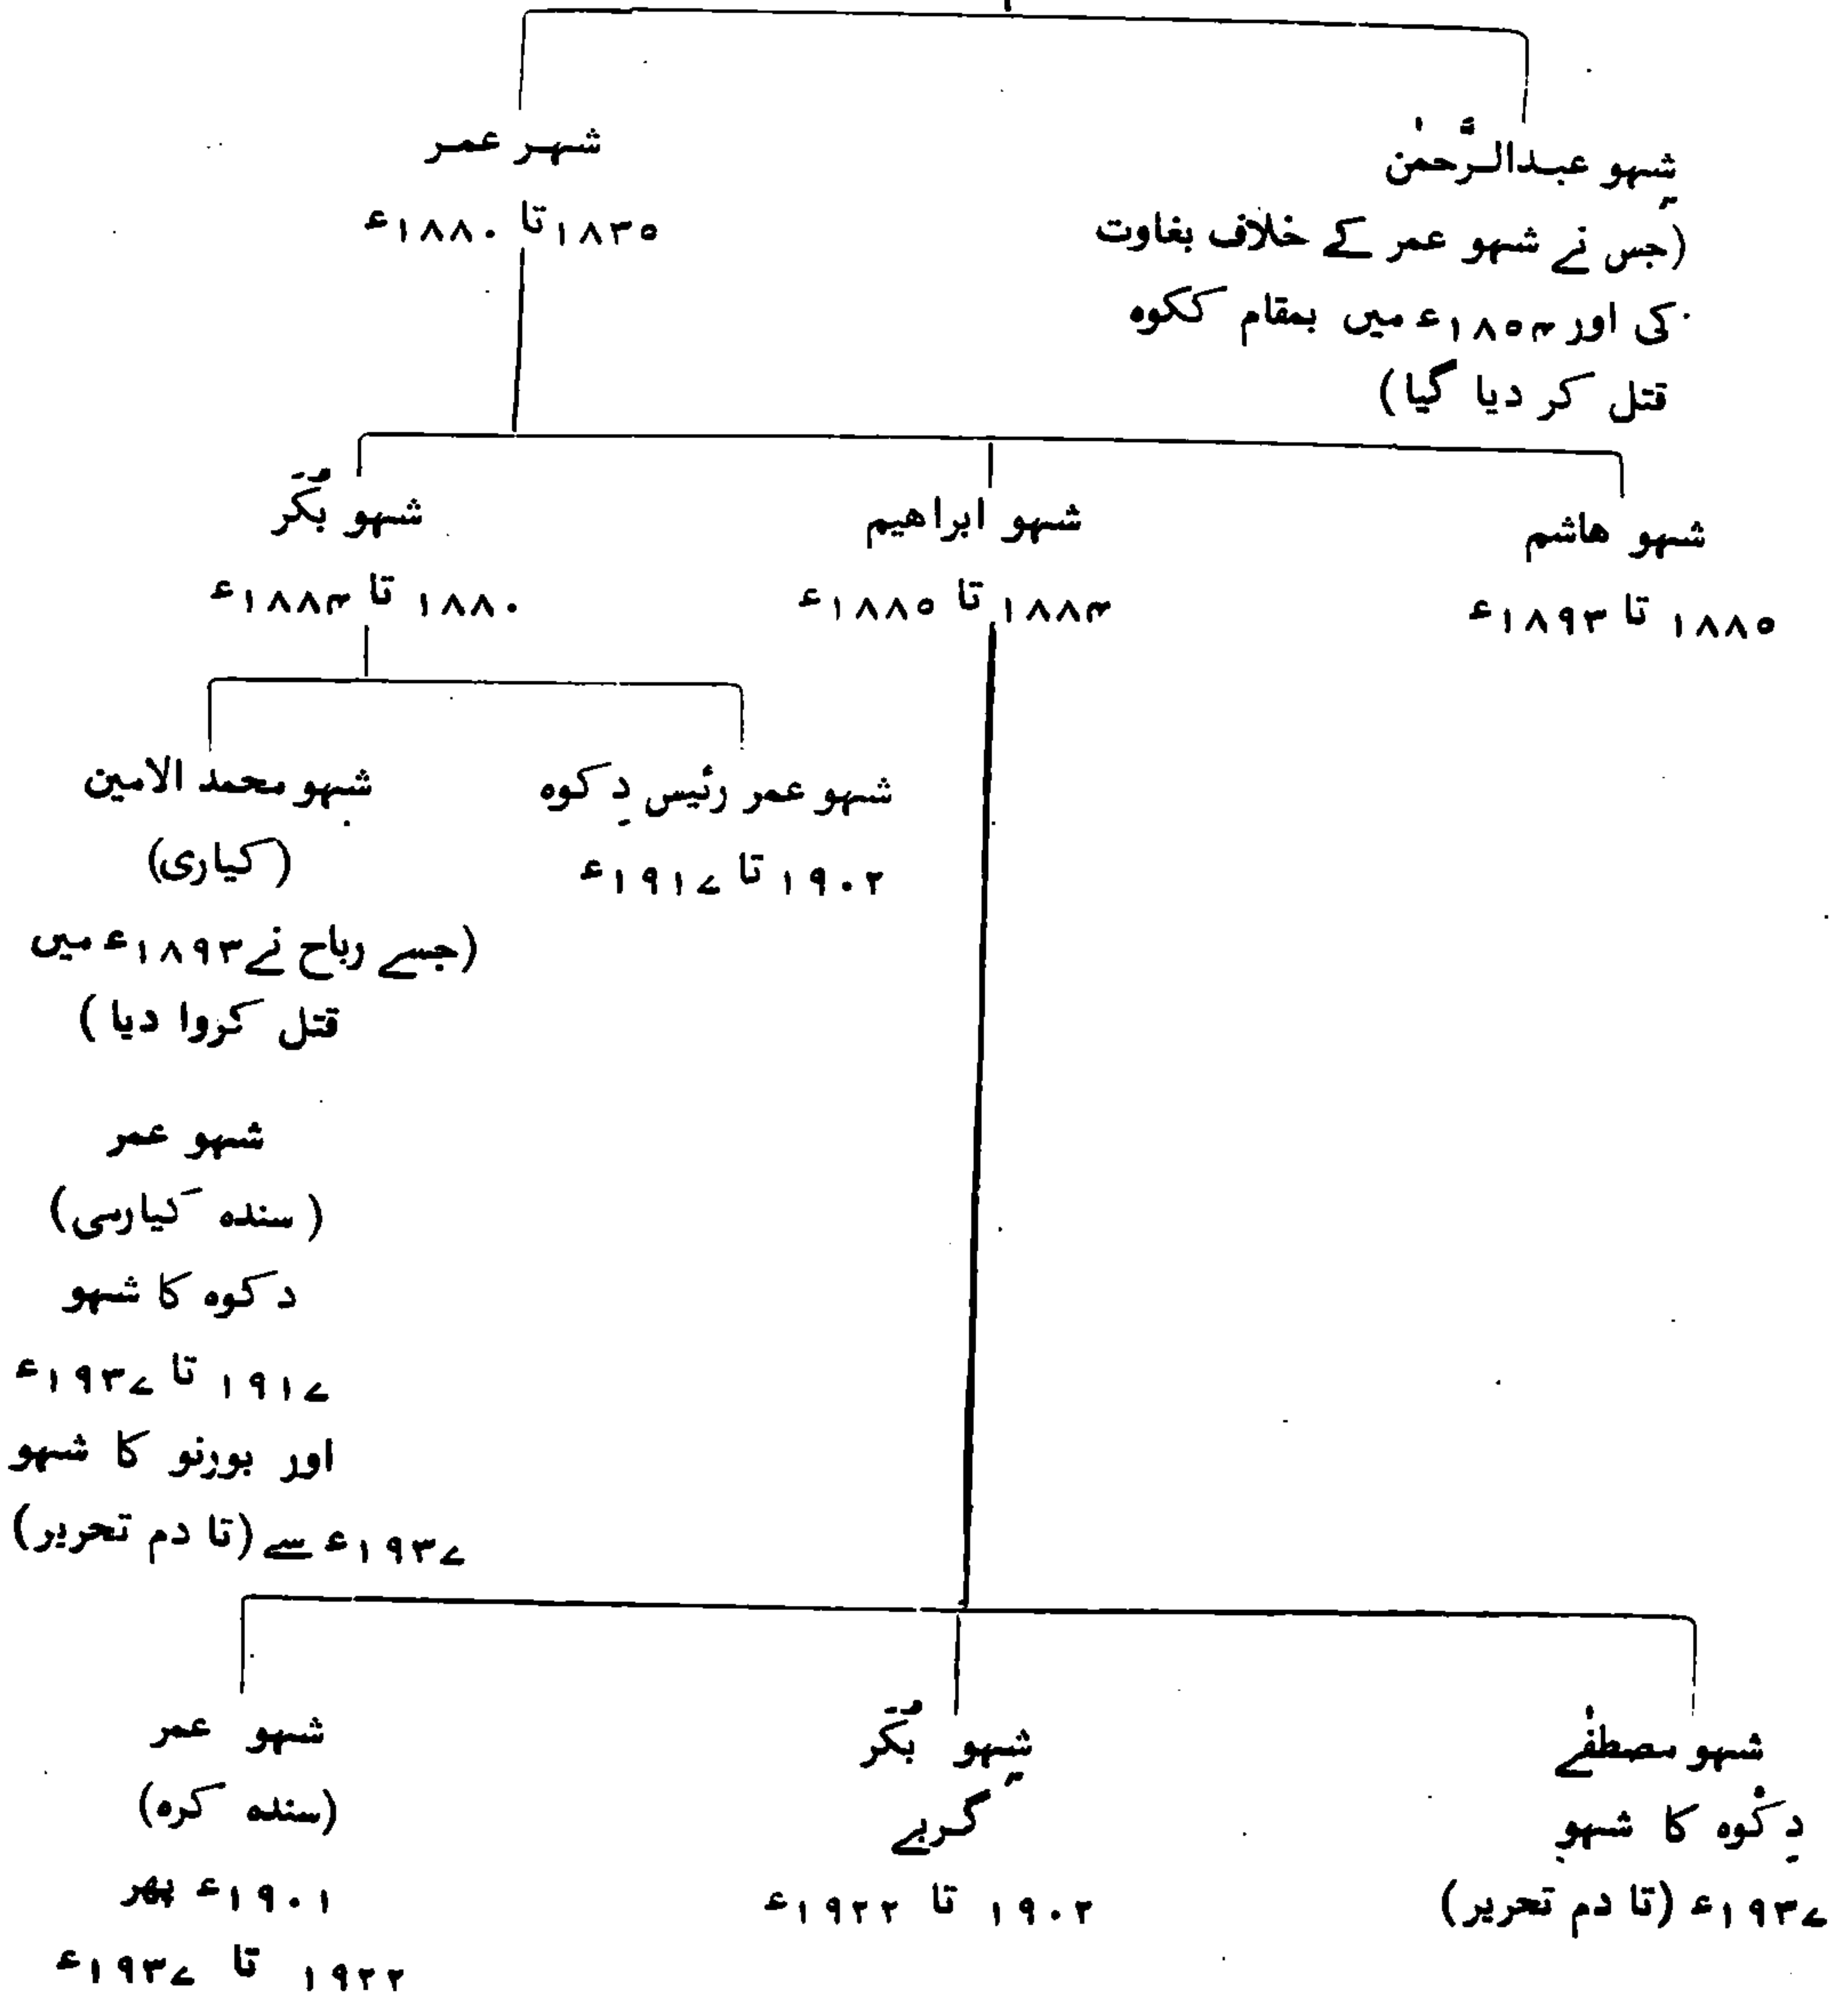 شہو عبدالرَّحمٰن
(جس نے شہو عمر کے خلاف بغاوت
کی اور ۱۸۵۴ء میں بمقام ککوہ
قتل کر دیا گیا)
شہر عمر
۱۸۳۵ تا ۱۸۸۰ء
شہو ھاشم
۱۸۸۵ تا ۱۸۹۳ء
شہو ابراھیم
۱۸۸۴ تا ۱۸۸۵ء
شہو بُکَّر
۱۸۸۰ تا ۱۸۸۴ء
شہو عمر رئیس دِ کوہ
۱۹۰۲ تا ۱۹۱۷ء
شہو محمد الامین
(کیاری)
(جسے رباح نے ۱۸۹۳ء میں
قتل کروا دیا)
شہو عمر
(سندہ کیارسی)
د کوہ کا شہو
۱۹۱۷ تا ۱۹۳۷ء
اور بورنو کا شہو
۱۹۳۷ء سے (تا دم تحریر)
شہو مصطفٰے
دِ کْوہ کا شہو
۱۹۳۷ء (تا دم تحریر)
شہو بُکَّر
گربے
۱۹۰۲ تا ۱۹۲۲ء
شہو عمر
(سندہ کرہ)
۱۹۰۱ء پھر
۱۹۲۲ تا ۱۹۳۷ء